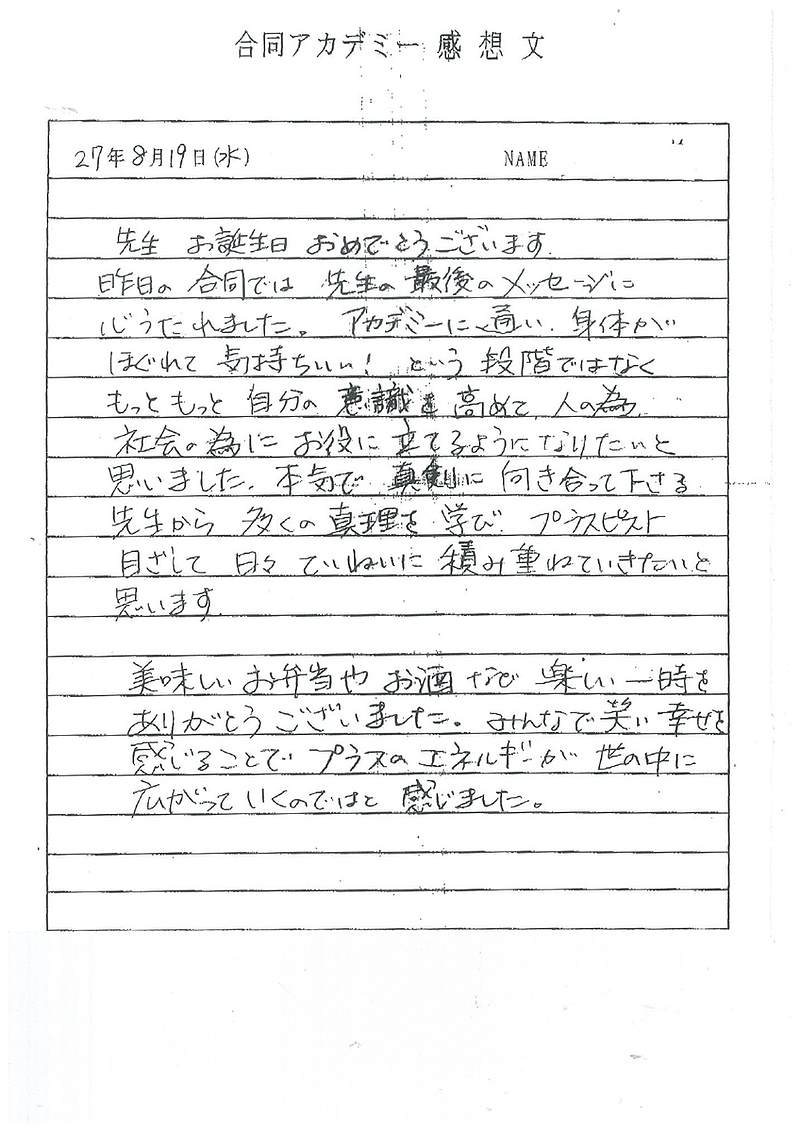 合同アカデミー感想文
27年8月19日(水) NAME
先生 お誕生日 おめでとうございます.
昨日の 合同では 先生の 最後のメッセージに
心うたれました。 アカデミーに通い、身体が
ほぐれて 気持ちいい! という 段階ではなく
もっと もっと 自分の 意識を 高めて、人の為、
社会の為に お役に立てるようになりたいと
思いました。本気で 真剣に 向き合って下さる
先生から 多くの 真理を 学び プラスピスト
目ざして 日々 ていねいに 積み重ねていきたいと
思います.
美味しいお弁当や お酒など 楽しい一時を
ありがとうございました。みんなで笑い 幸せを
感じることで プラスのエネルギーが 世の中に
広がって いくのではと 感じました。